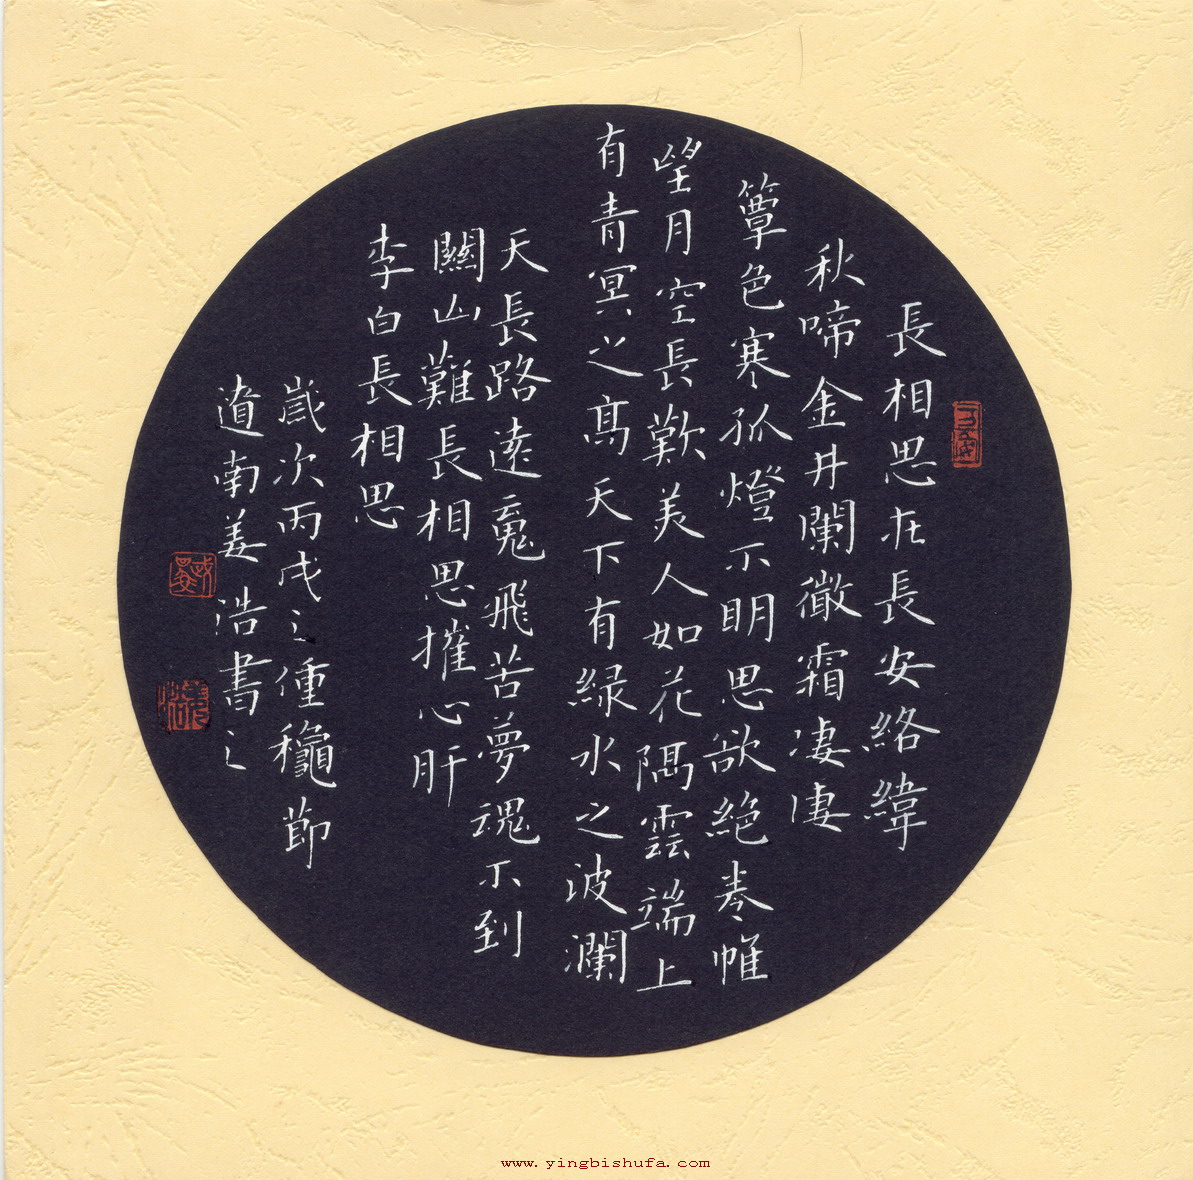 長相思在長安絡緯
秋啼金井闌微霜凄凄
簟色寒孤燈不明思欲絶卷帷
望月空長歎美人如花隔雲端上
有青冥之髙天下有緑水之波瀾
天長路遠魂飛苦夢魂不到
關山難長相思摧心肝
李白長相思
歲次丙戌之偅龝節
道南姜浩書之
www.yingbishufa.com